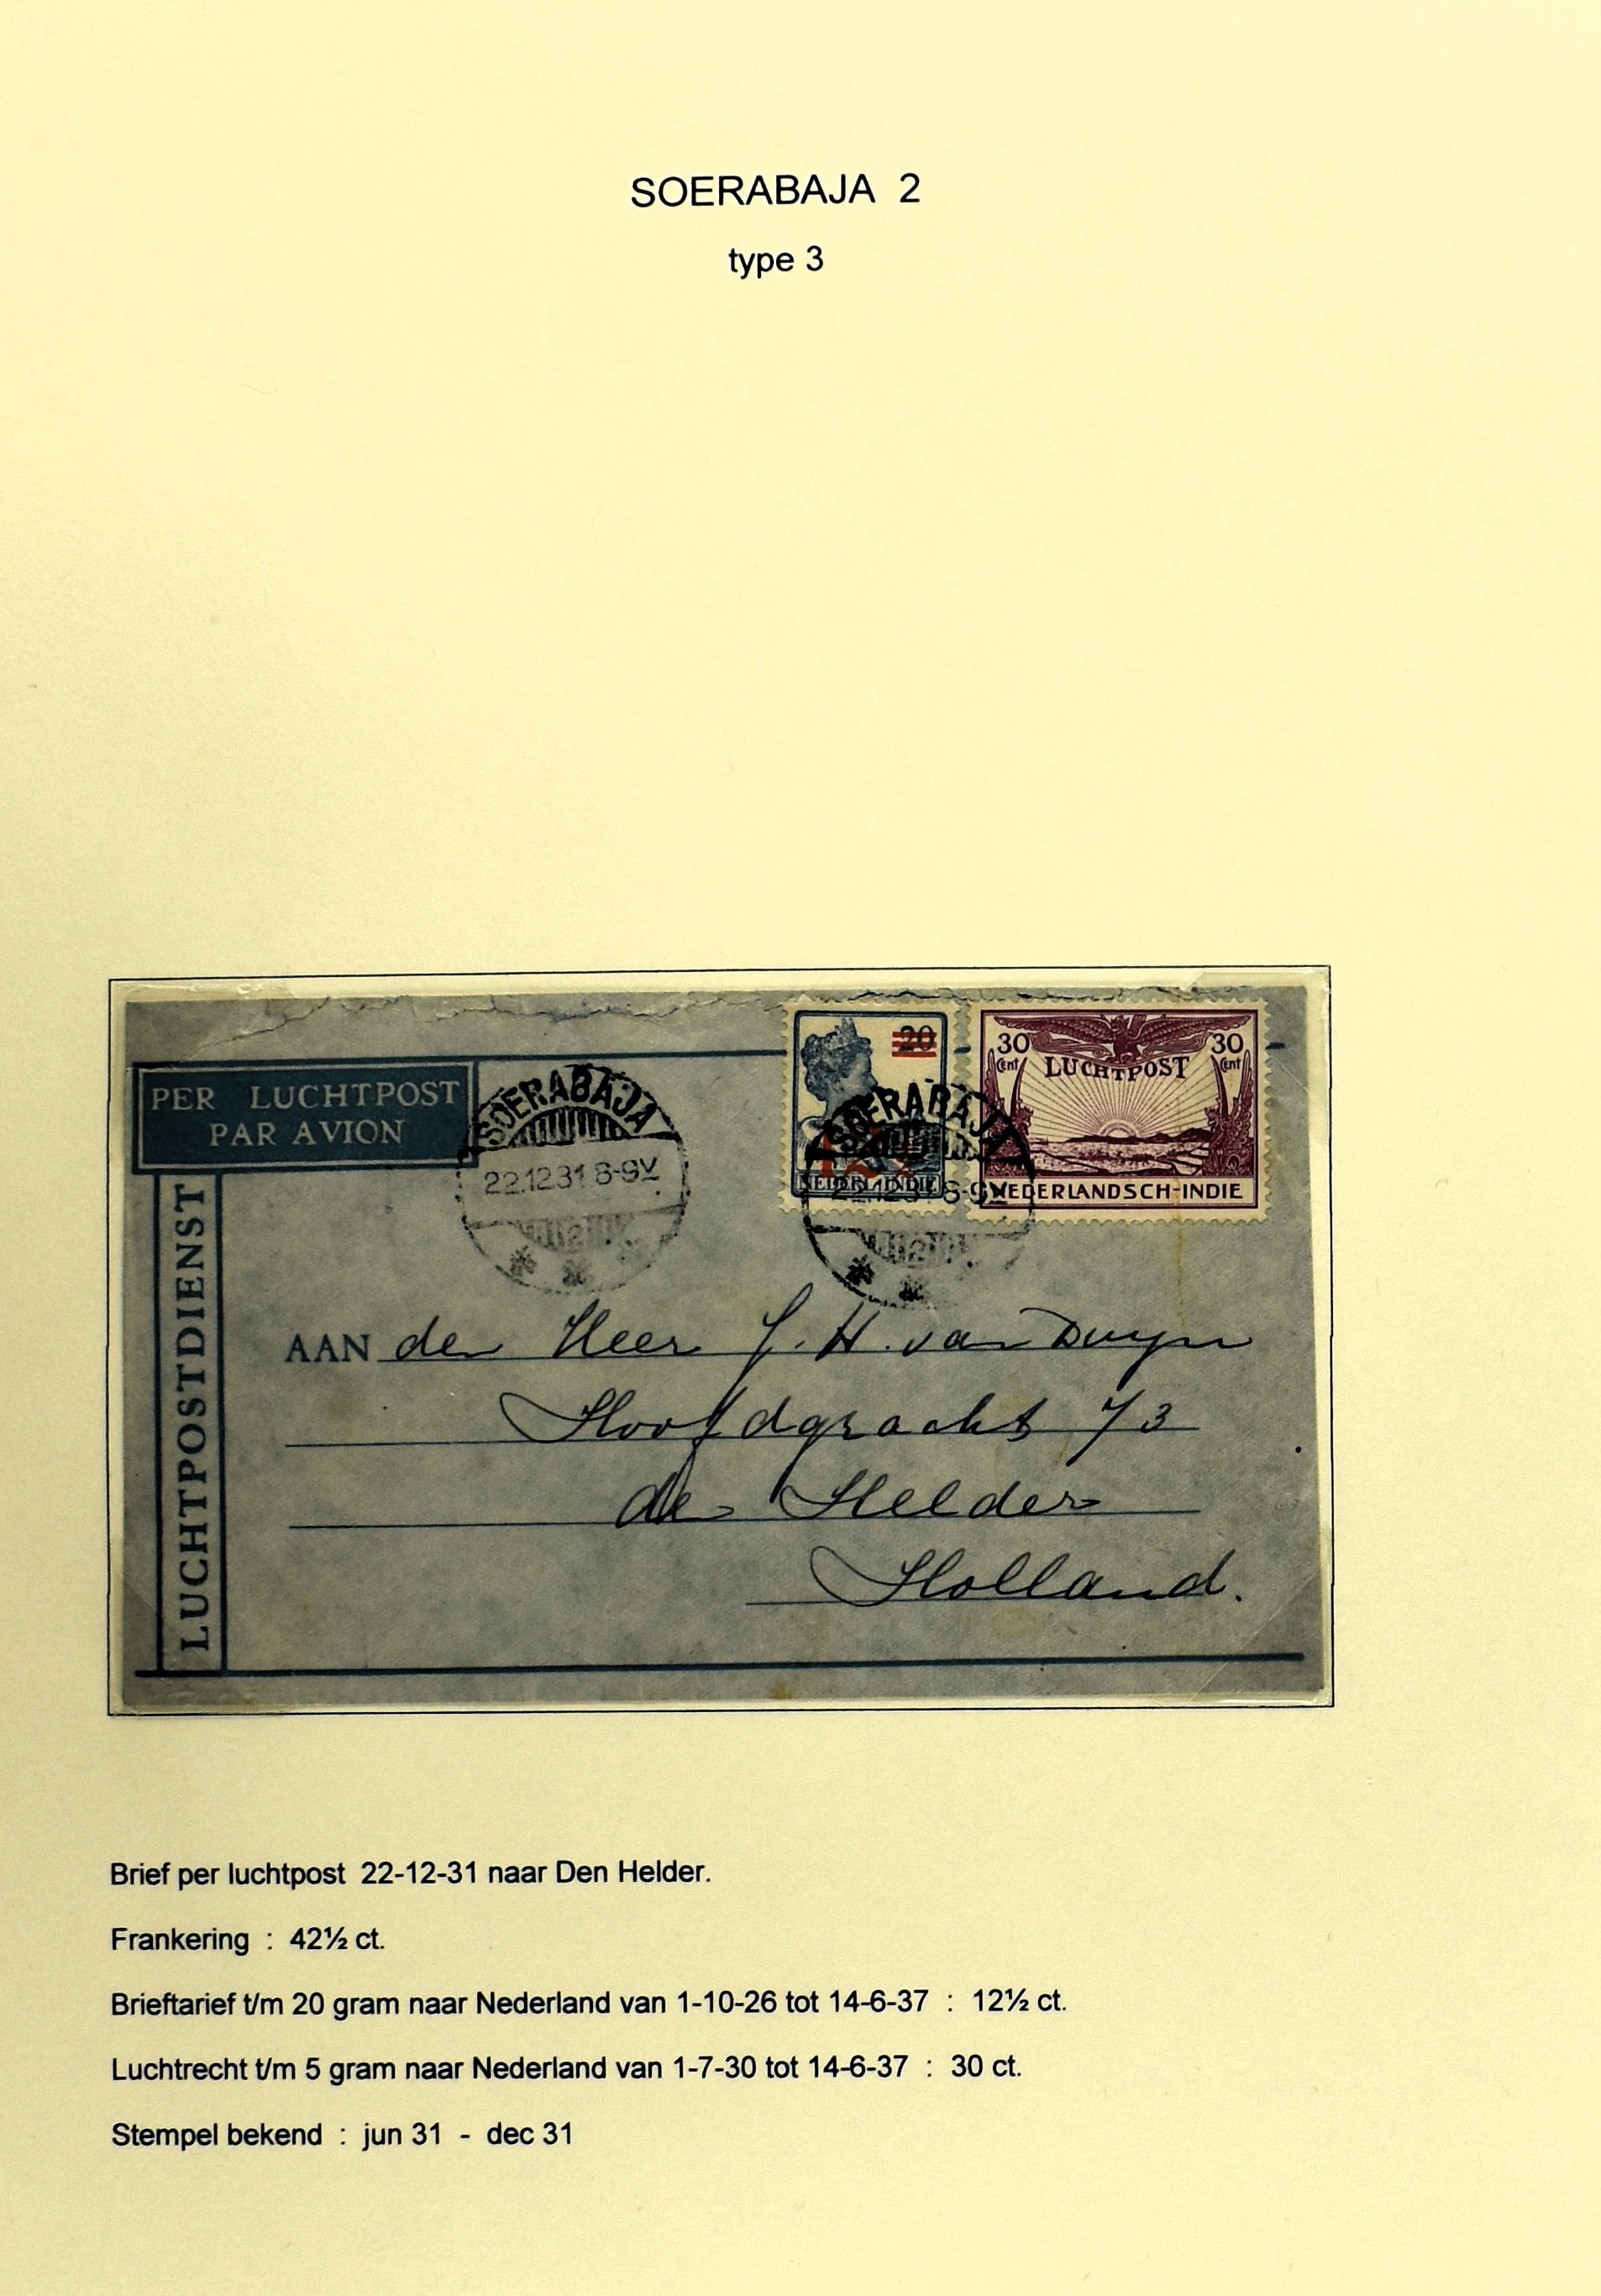 SOERABAJA 2
type 3
20
30 Cent
30 Cent
LUCHTPOST
PER LUCHTPOST
PAR AVION
SOERABAJA
22.12.31 8-9V
SOERABAJA
22.12.31 8-9V
12½
NEDERL.INDIE
NEDERLANDSCH-INDIE
LUCHTPOSTDIENST
AAN den Heer J. H. van Duyn
Hoofdgracht 73
den Helder
Holland.
Brief per luchtpost 22-12-31 naar Den Helder.
Frankering : 42½ ct.
Brieftarief t/m 20 gram naar Nederland van 1-10-26 tot 14-6-37 : 12½ ct.
Luchtrecht t/m 5 gram naar Nederland van 1-7-30 tot 14-6-37 : 30 ct.
Stempel bekend : jun 31 - dec 31